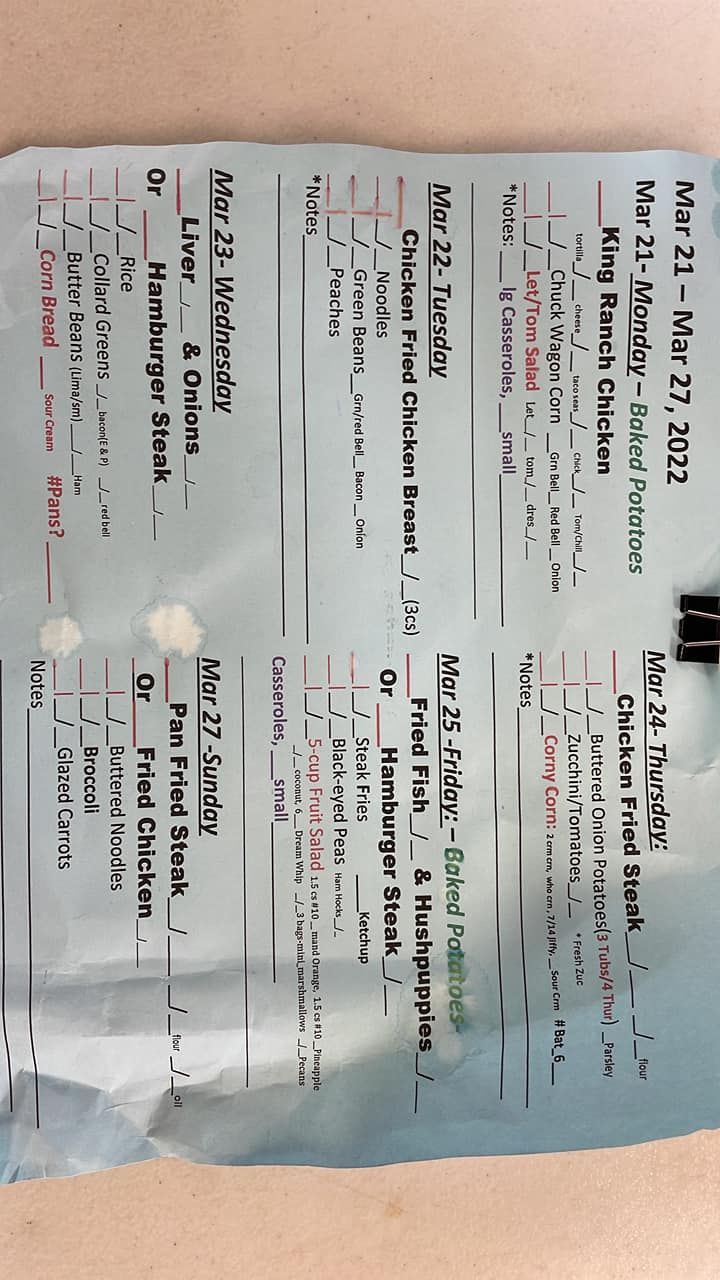 Mar 21 – Mar 27, 2022
Mar 21- Monday – Baked Potatoes
___King Ranch Chicken
tortilla_/__ cheese_/__ taco seas_/__ Chick_/__ Tom/Chill_/__
__|_/__Chuck Wagon Corn __Grn Bell__Red Bell __Onion
__|_/__Let/Tom Salad Let_/__ tom_/__ dres_/__
*Notes: ___ lg Casseroles, ___small
Mar 22- Tuesday
___Chicken Fried Chicken Breast_/__(3cs)
__|_/__Noodles
__|_/__Green Beans__Grn/red Bell__Bacon __Onion
__|_/__Peaches
*Notes
Mar 23- Wednesday
___Liver_/__ & Onions_/__
Or ___Hamburger Steak_/__
__|_/__Rice
__|_/__Collard Greens _/_bacon(E & P) _/_red bell
__|_/__Butter Beans (Lima/sm)__/__Ham
__|_/__Corn Bread ___ Sour Cream #Pans?____
Mar 24- Thursday:
___Chicken Fried Steak_/___ _/__flour
__|_/__Buttered Onion Potatoes(3 Tubs/4 Thur) _Parsley
__|_/__Zucchini/Tomatoes_/__ * Fresh Zuc
__|_/__Corny Corn: 2 crm crn, who crn, 7/14 Jiffy,__Sour Crm # Bat_6__
*Notes
Mar 25 -Friday: – Baked Potatoes
___Fried Fish_/__ & Hushpuppies_/__
Or ___Hamburger Steak_/__
__|_/__Steak Fries ____Ketchup
__|_/__Black-eyed Peas Ham Hocks_/_
__|_/__5-cup Fruit Salad 1.5 cs #10 __mand Orange, 1.5 cs #10 __Pineapple
_/_ coconut, 6__Dream Whip _/_3 bags-mini_marshmallows _/_Pecans
Casseroles, ___small
Mar 27 -Sunday
___Pan Fried Steak_/___ _/__flour _/__oil
Or ___Fried Chicken_/__
__|_/__Buttered Noodles
__|_/__Broccoli
__|_/__Glazed Carrots
Notes